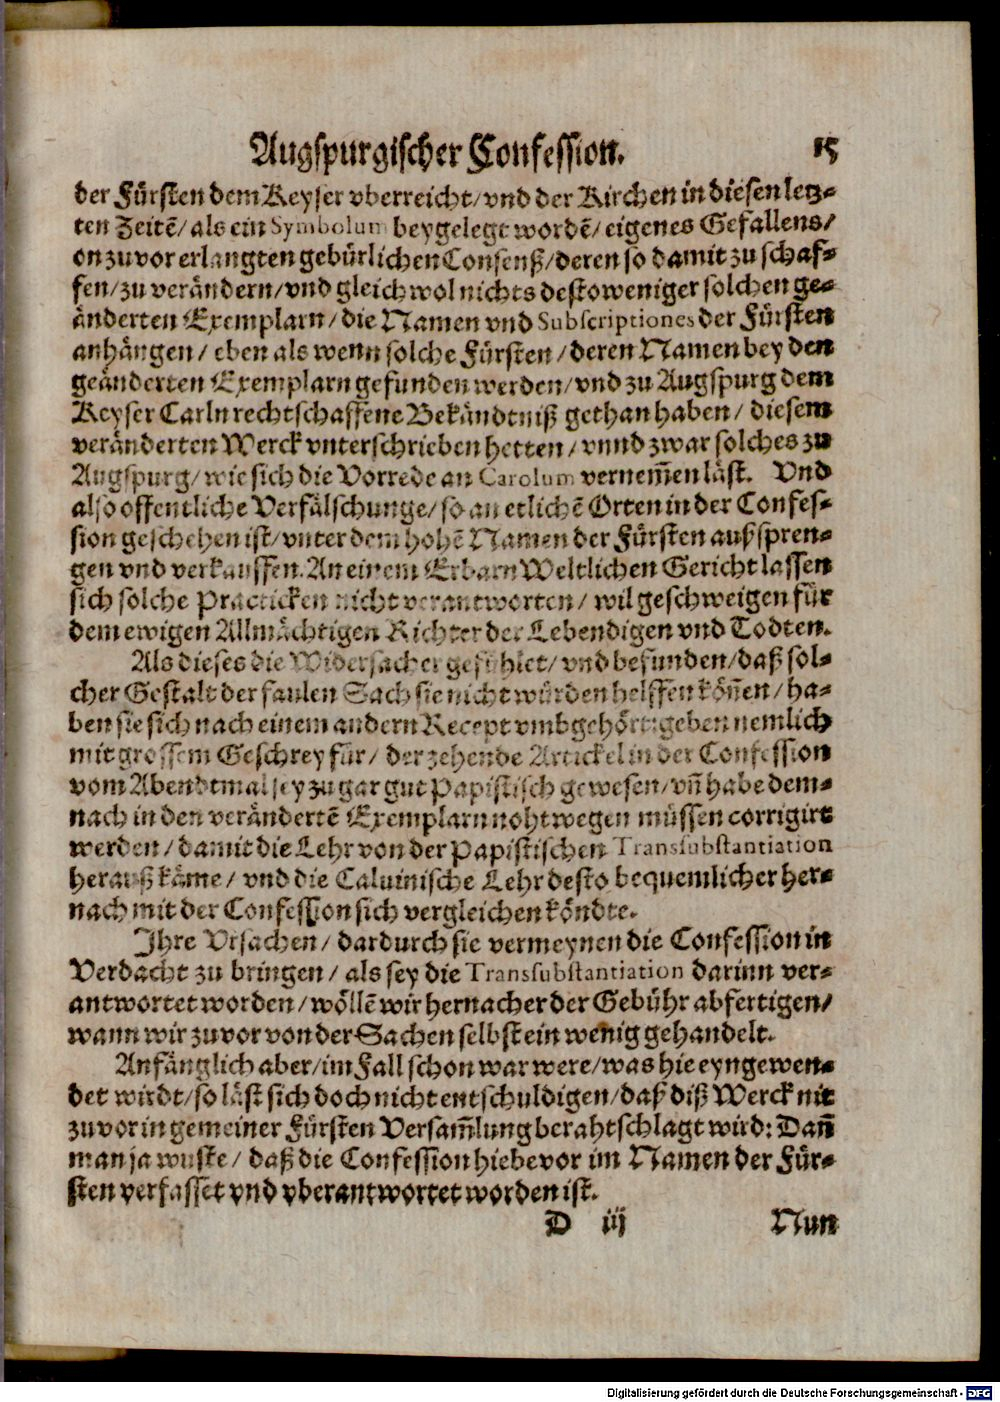 Augspurgischer Confession. 15
der Fürsten dem Keyser vberreicht/ vnd der Kirchen in diesen letz-
ten Zeitē/ als ein Symbolum beygelegt wordē/ eigenes Gefallens/
on zuvor erlangten gebürlichen Consenß/ deren so damit zu schaf-
fen/ zu verändern/ vnd gleichwol nichts destoweniger solchen ge-
änderten Exemplarn/ die Namen vnd Subscriptiones der Fürsten
anhängen/ eben als wenn solche Fürsten/ deren Namen bey den
geänderten Exemplarn gefunden werden/ vnd zu Augspurg dem
Keyser Carln rechtschaffene Bekändtniß gethan haben/ diesem
veränderten Werck vnterschrieben hetten/ vnnd zwar solches zu
Augspurg/ wie sich die Vorrede an Carolum vernem̃en läst. Vnd
also offentliche Verfälschunge/ so an etlichē Orten in der Confes-
sion geschehen ist/ vnter dem hohē Namen der Fürsten außspren-
gen vnd verkauffen. An einem Erbarn Weltlichen Gericht lassen
sich solche Practicken nicht verantworten/ wil geschweigen für
dem ewigen Allmächtigen Richter der Lebendigen vnd Todten.
Als dieses die Widersacher gefühlet/ vnd befunden/ daß sol-
cher Gestalt der faulen Sach sie nicht würden helffen kön̄en/ ha-
ben sie sich nach einem andern Recept vmbgehört: geben nemlich
mit grossem Geschrey für/ der zehende Artickel in der Confession
vom Abendtmal sey zu gar gut Papistisch gewesen/ vn̄ habe dem-
nach in den veränderte̅ Exemplarn noht wegen müssen corrigirt
werden/ damit die Lehr von der Papistischen Transsubstantiation
herauß käme/ vnd die Caluinische Lehr desto bequemlicher her-
nach mit der Confession sich vergleichen köndte.
Ihre Vrsachen/ dardurch sie vermeynen die Confession in
Verdacht zu bringen/ als sey die Transsubstantiation darinn ver-
antwortet worden/ wöllē wir hernacher der Gebühr abfertigen/
wann wir zuvor von der Sachen selbst ein wenig gehandelt.
Anfänglich aber/ im Fall schon war were/ was hie eyngewen-
det wirdt/ so läst sich doch nicht entschuldigen/ daß diß Werck nit
zuvor in gemeiner Fürsten Versam̃lung berahtschlagt wird: Dan̄
man ja wuste/ daß die Confession hiebevor im Namen der Für-
sten verfasset vnd vberantwortet worden ist.
D iij Nun
Digitalisierung gefördert durch die Deutsche Forschungsgemeinschaft - DFG